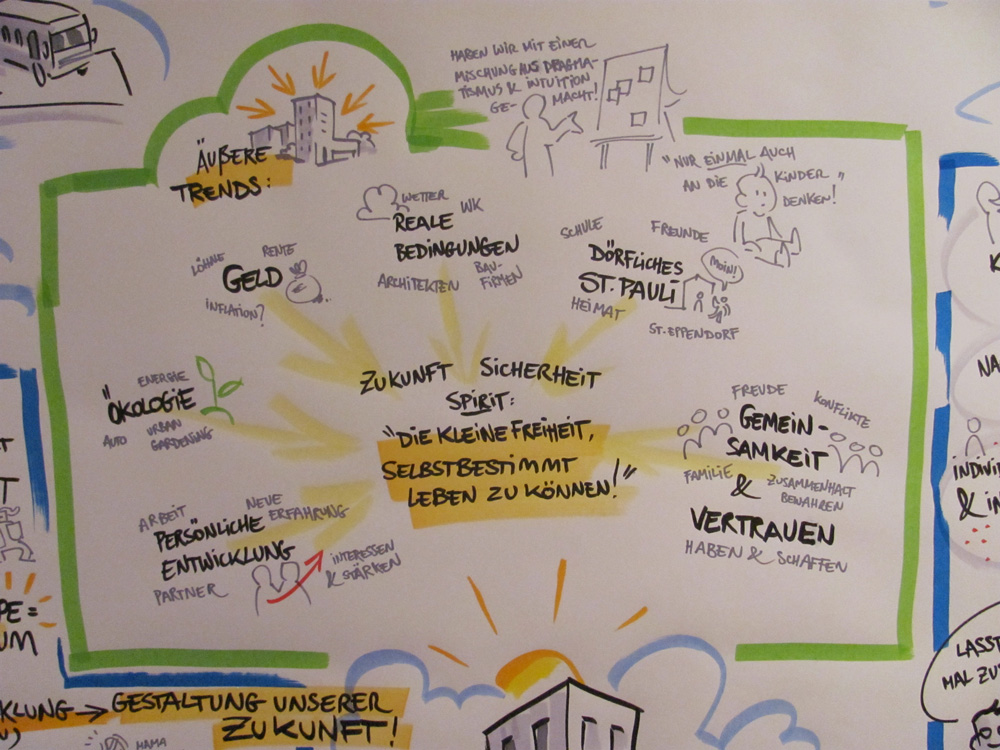 HABEN WIR MIT EINER
MISCHUNG AUS PRAGMA-
TISMUS & INTUITION
GE- MACHT!
ÄUßERE
TRENDS:
"NUR EINMAL AUCH
AN DIE KINDER"
DENKEN!
WETTER
REALE WK
BEDINGUNGEN
ARCHITEKTEN BAU-
FIRMEN
SCHULE FREUNDE
DÖRFLICHES
ST. PAULI
HEIMAT
MOIN!
ST. EPPENDORF
LÖHNE RENTE
GELD
INFLATION?
ENERGIE
"ÖKOLOGIE
AUTO URBAN
GARDENING
ZUKUNFT SICHERHEIT
SPIRIT:
"DIE KLEINE FREIHEIT,
SELBSTBESTIMMT
LEBEN ZU KÖNNEN!"
FREUDE KONFLIKTE
GEMEIN-
SAMKEIT
FAMILIE & ZUSAMMENHALT
BEWAHREN
VERTRAUEN
HABEN & SCHAFFEN
ARBEIT NEUE
ERFAHRUNG
PERSÖNLICHE
ENTWICKLUNG
PARTNER
INTERESSEN
& STÄRKEN
PE =
UM
KLUNG → GESTALTUNG UNSERER
ZUKUNFT!
MAMA
NA
INDIVI
& IN
LASST
MAL ZU